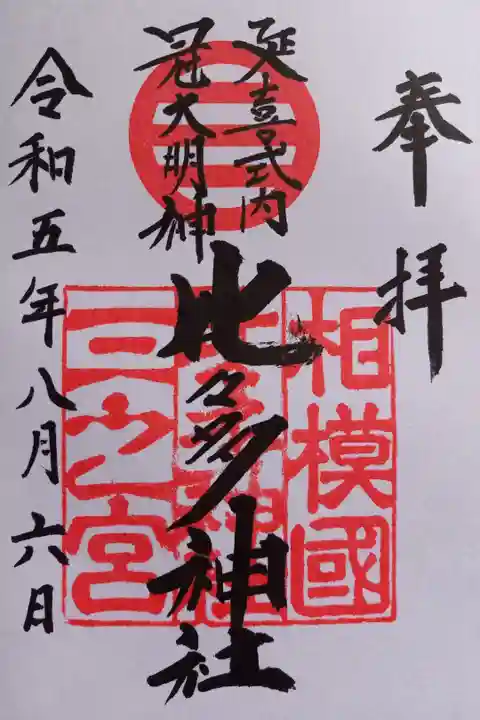 奉拝
延喜式内
冠大明神
三
比々多神社
相模國
三之宮
令和五年八月六日